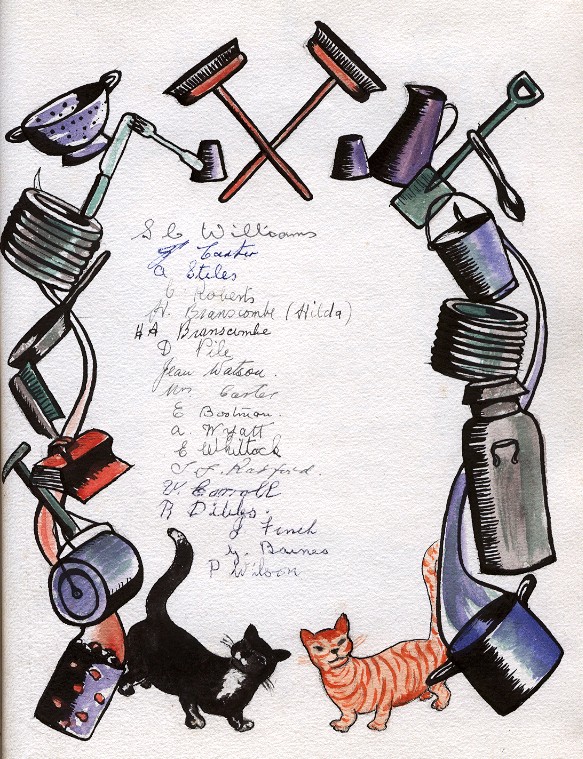 S C Williams
J Carter
A Stiles
C Roberts
H. Branscombe (Hilda)
HA Branscombe
D Pile
Jean Watson.
Mrs Carter
E Bostman.
A. Wyatt
E Whittock
J. F. Radford.
V. Carroll
R Dibbs.
J Finch
Y. Baines
P Wilson